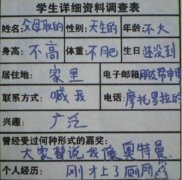 学生详细资料调查表
姓名:父母取的 性别:天生的 年龄:不大
身高:不高 体重:不肥 生日:还没到
居住地:家里 电子邮箱:
联系方式:喊我 电话:摩托罗拉的
兴趣:广泛
曾经受过何种形式的嘉奖:
大家都说我像奥特曼
个人经历:刚才上了厕所